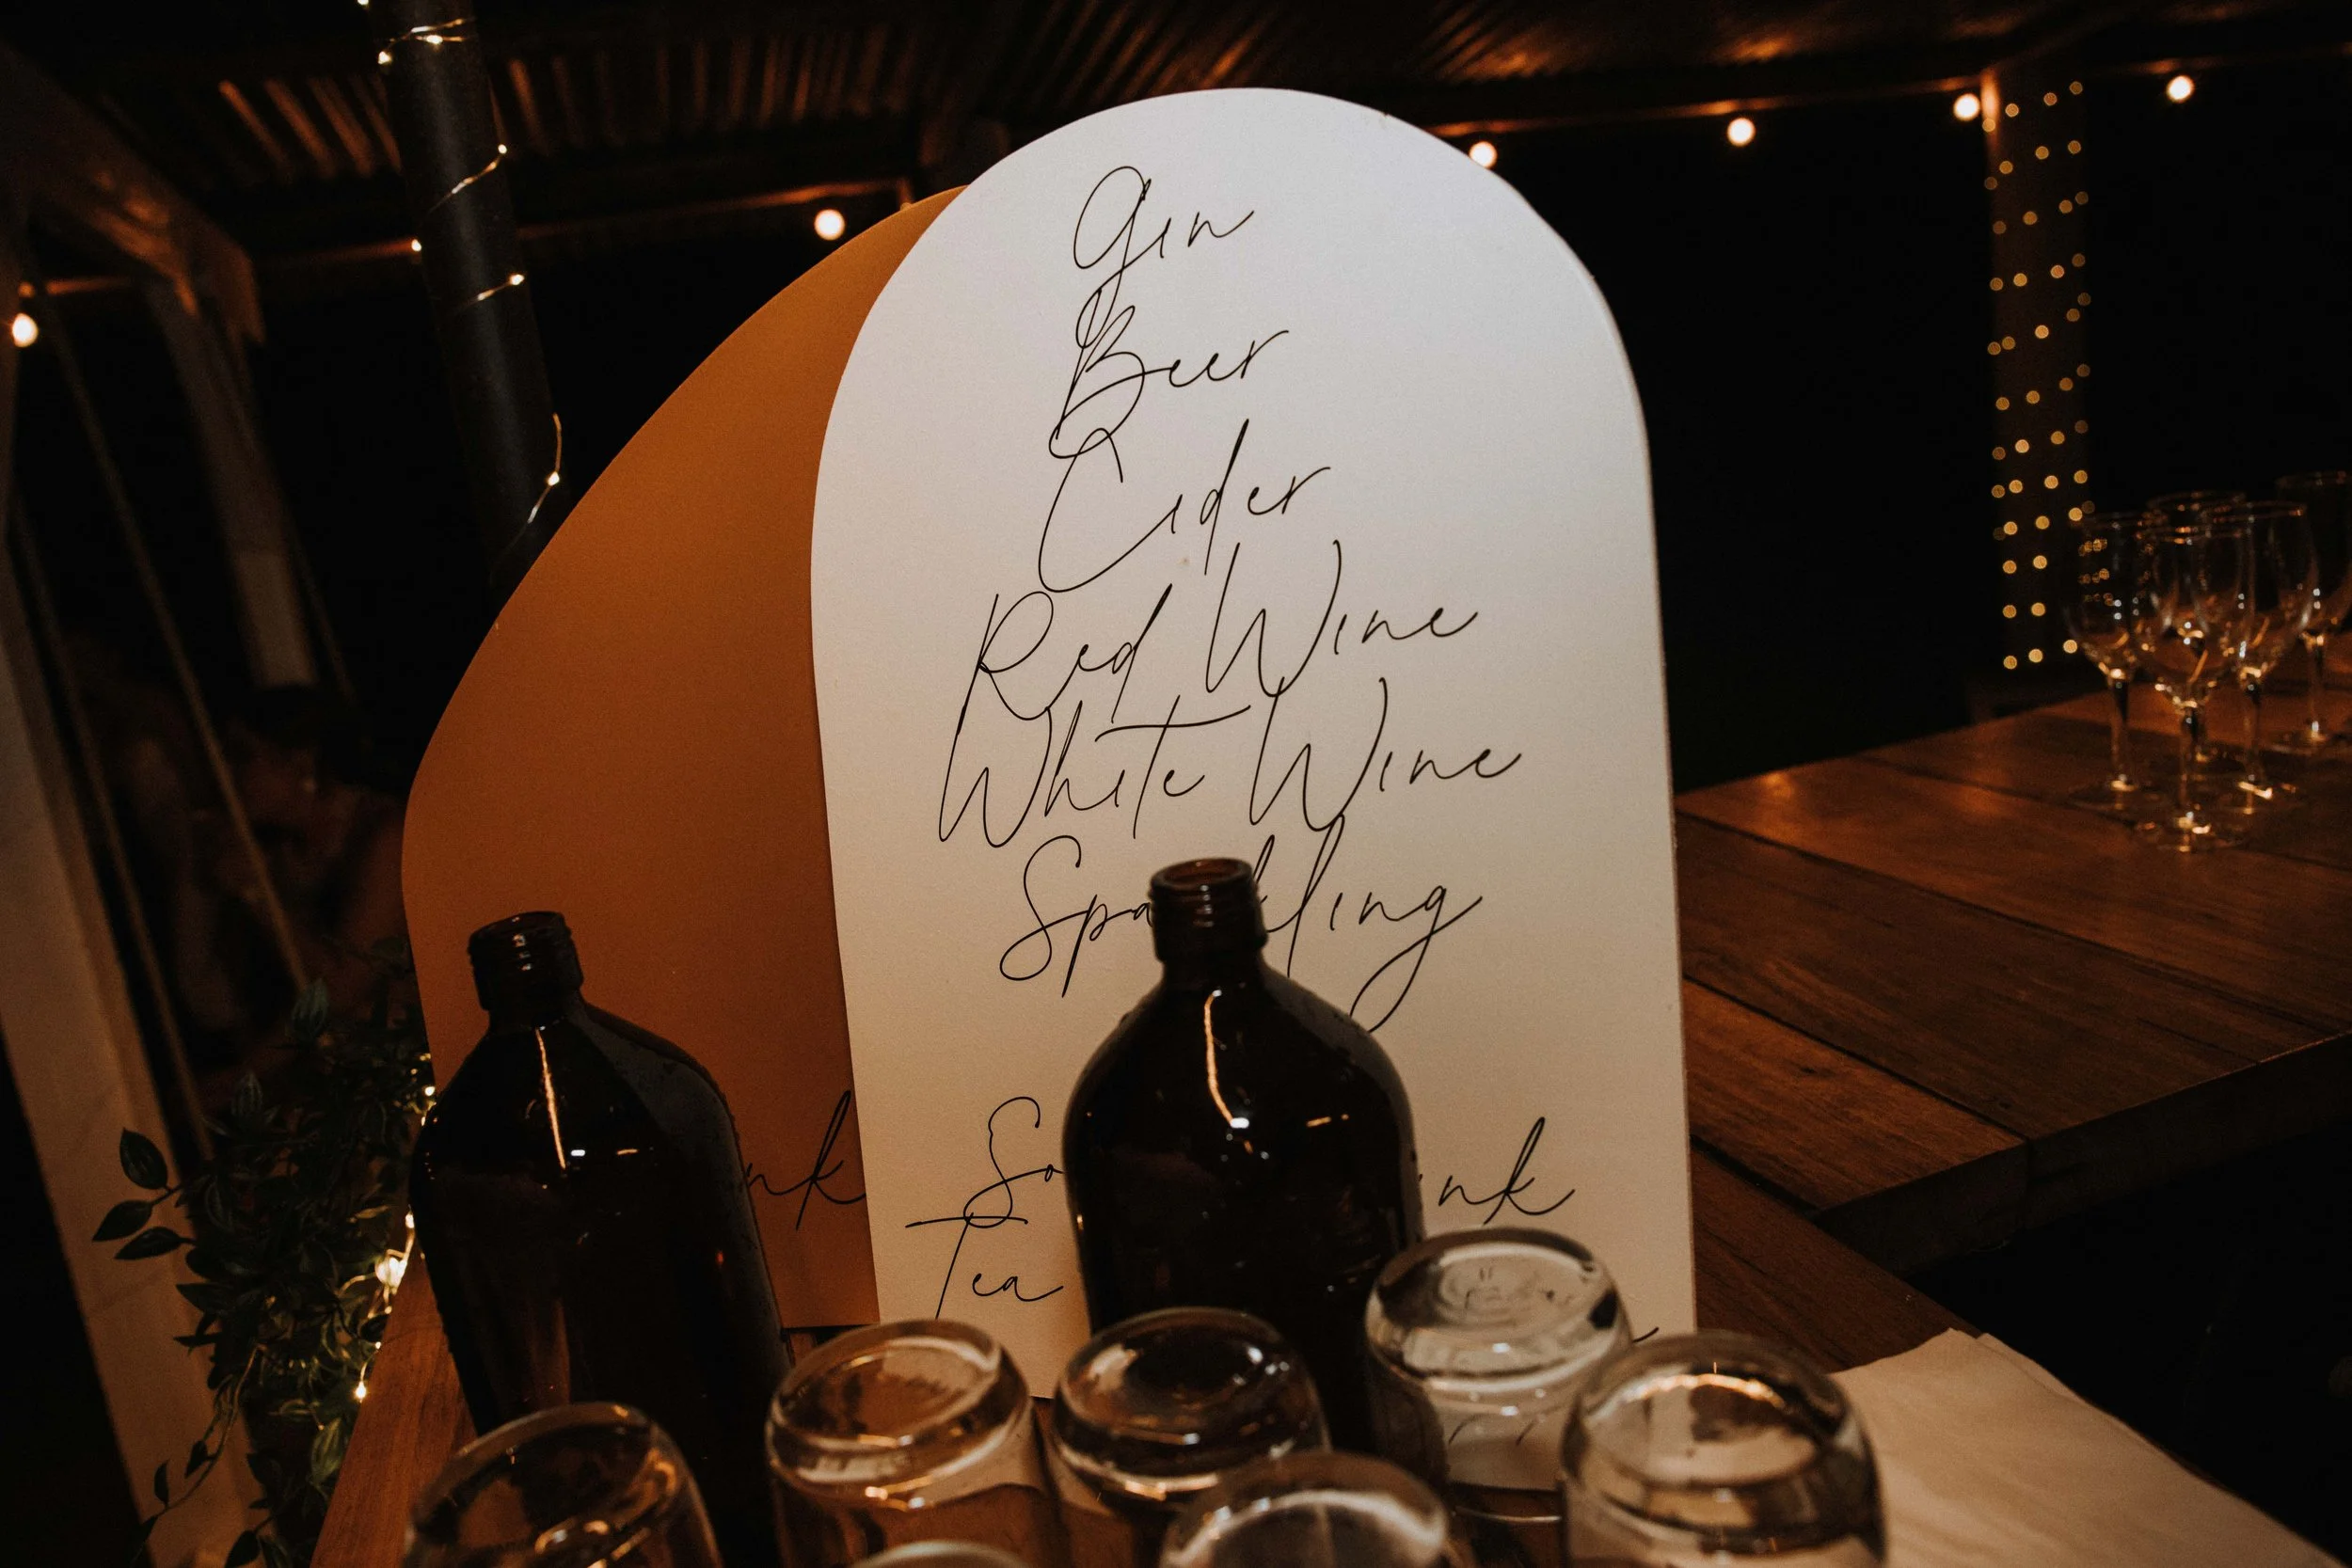 Gin
Beer
Cider
Red Wine
White Wine
Sparkling
Tea